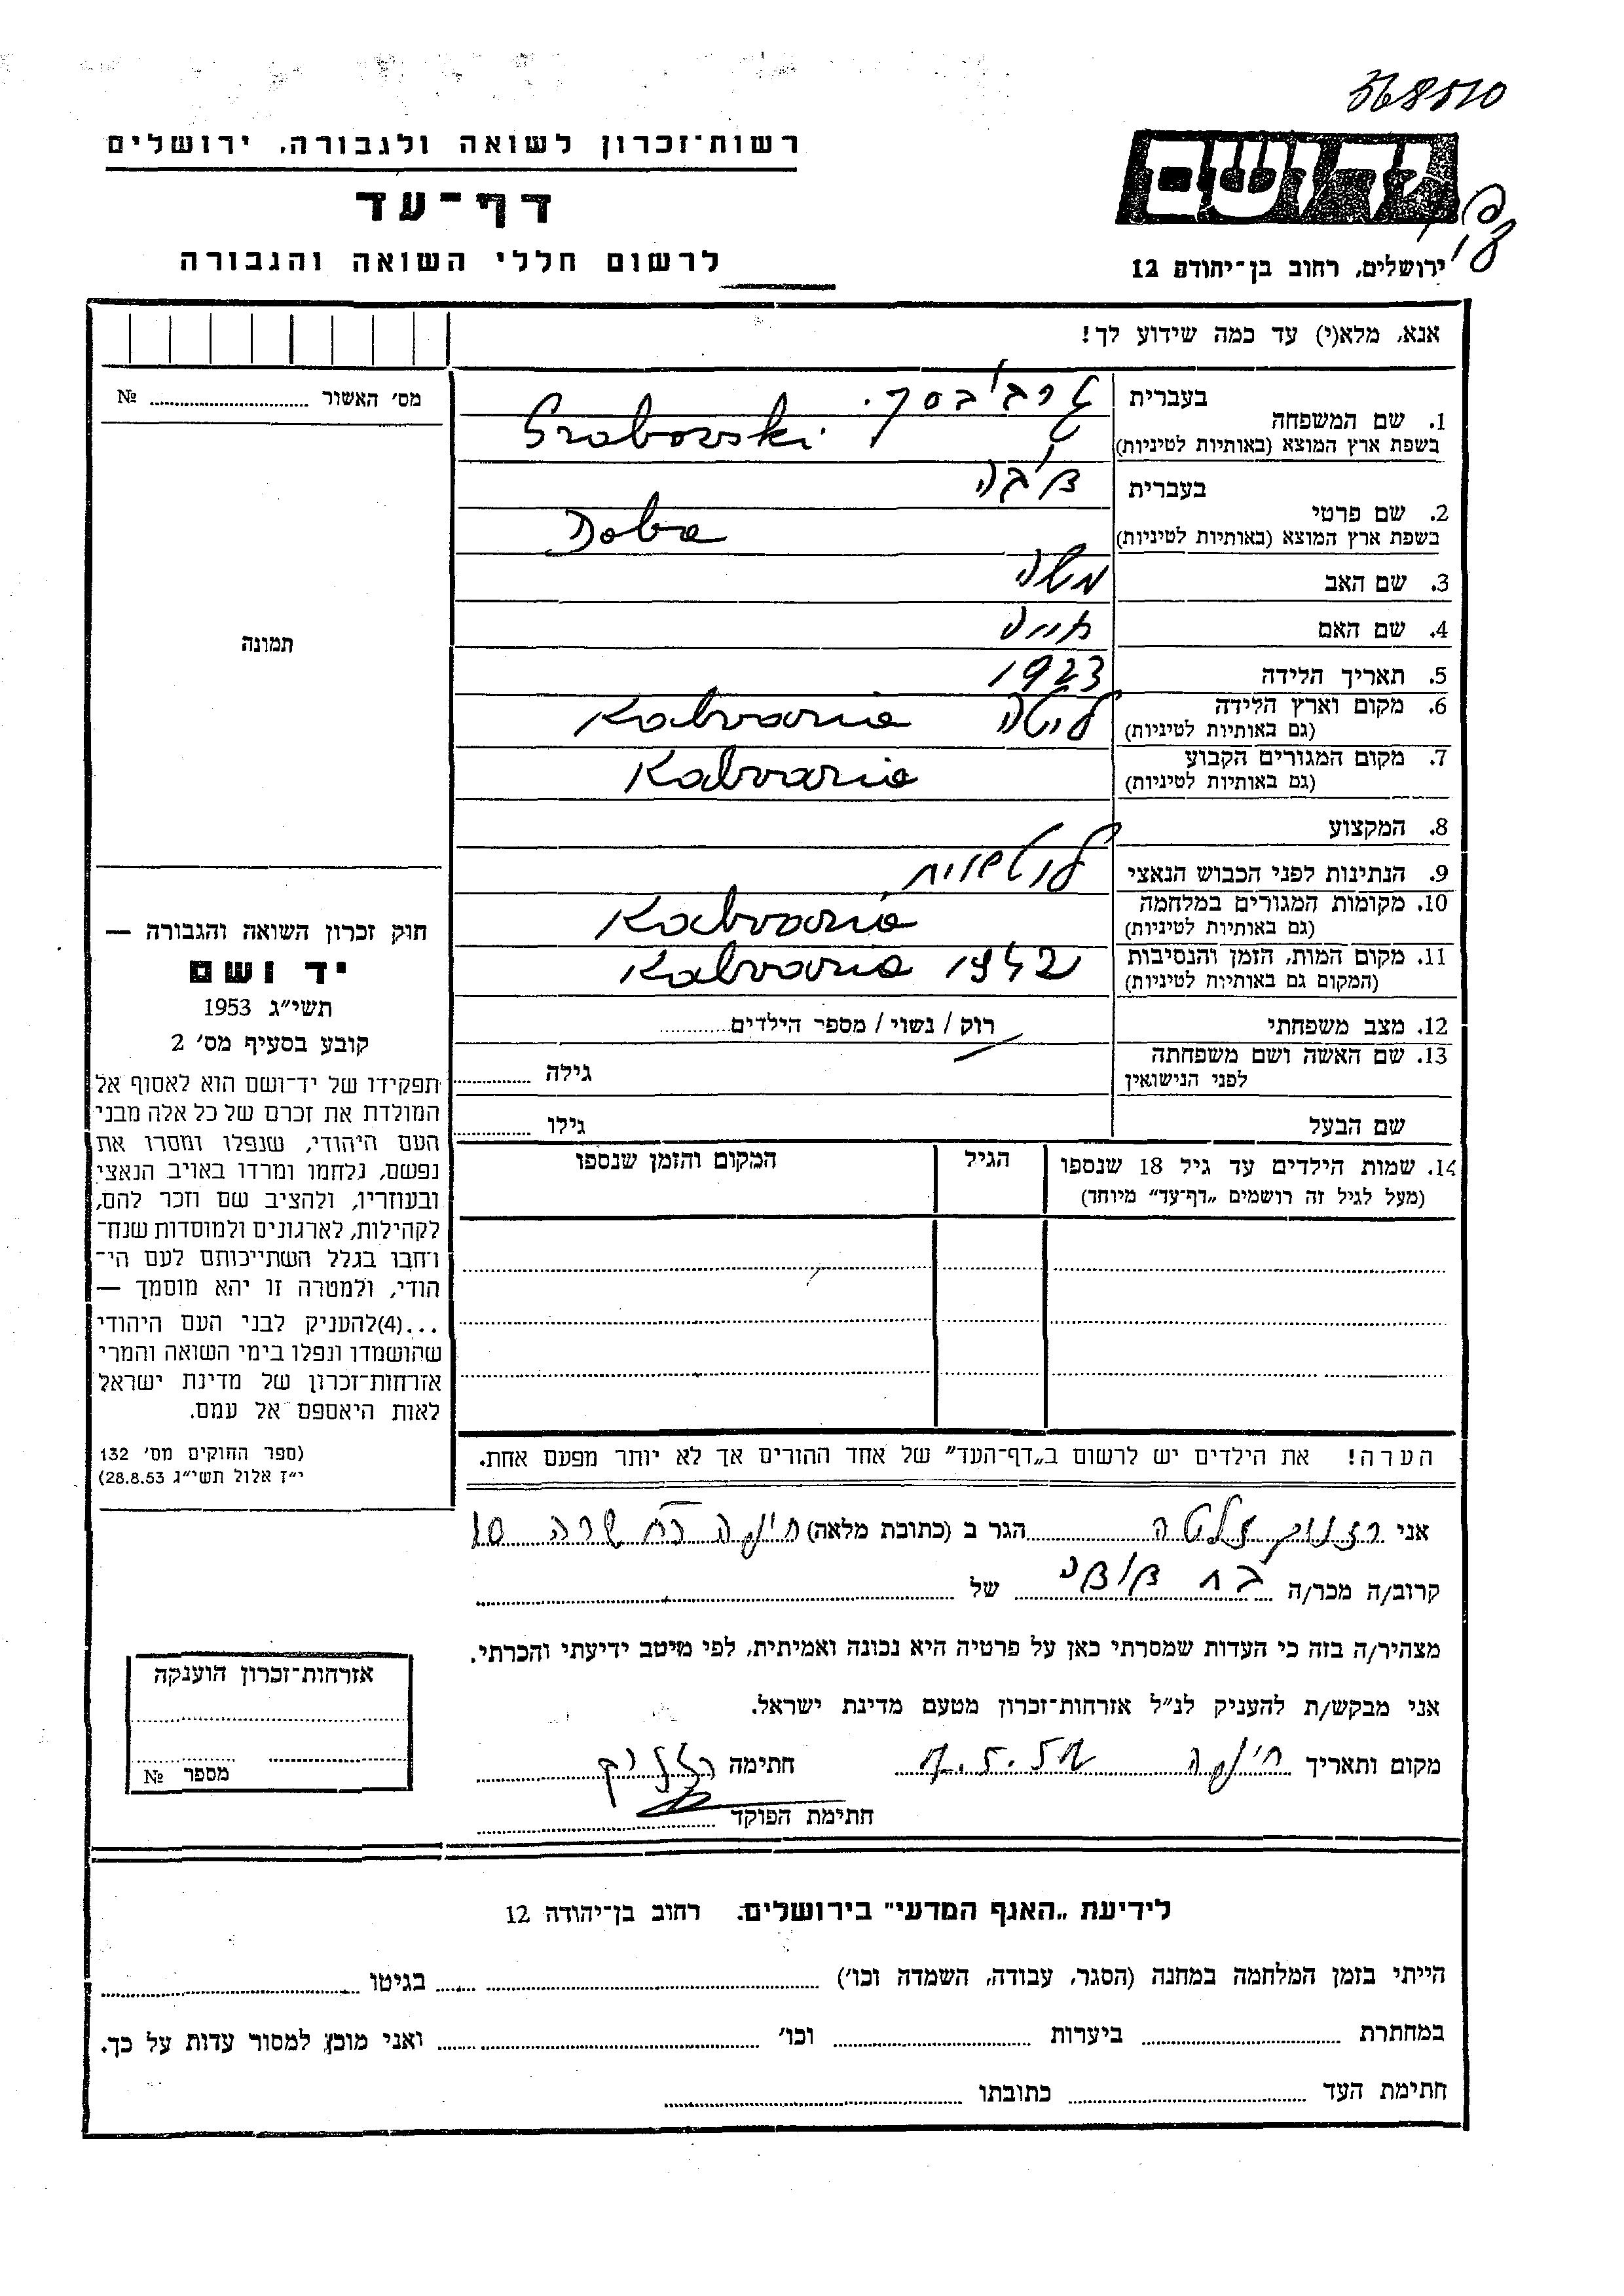 368510
רשות־זכרון לשואה ולגבורה, ירושלים
דף־עד
לרשום חללי השואה והגבורה
יד ושם
ירושלים, רחוב בן־יהודה 12
אנא, מלא(י) עד כמה שידוע לך!
מס׳ האשור ........ №
1. שם המשפחה
בעברית גרבובסקי
בשפת ארץ המוצא (באותיות לטיניות) Grabowski
2. שם פרטי
בעברית דובה
בשפת ארץ המוצא (באותיות לטיניות) Doba
3. שם האב משה
4. שם האם חיה
5. תאריך הלידה 1923
6. מקום וארץ הלידה ליטה Kalvaria
(גם באותיות לטיניות)
7. מקום המגורים הקבוע Kalvaria
(גם באותיות לטיניות)
8. המקצוע
9. הנתינות לפני הכבוש הנאצי ליטאית
10. מקומות המגורים במלחמה Kalvaria
(גם באותיות לטיניות)
11. מקום המות, הזמן והנסיבות Kalvaria 1942
(המקום גם באותיות לטיניות)
12. מצב משפחתי רוק / נשוי / מספר הילדים........
13. שם האשה ושם משפחתה
לפני הנישואין גילה ........
שם הבעל גילו ........
14. שמות הילדים עד גיל 18 שנספו הגיל המקום והזמן שנספו
(מעל לגיל זה רושמים „דף־עד״ מיוחד)
הערה! את הילדים יש לרשום ב„דף־העד״ של אחד ההורים אך לא יותר מפעם אחת.
תמונה
חוק זכרון השואה והגבורה —
יד ושם
תשי״ג 1953
קובע בסעיף מס׳ 2
תפקידו של יד־ושם הוא לאסוף אל
המולדת את זכרם של כל אלה מבני
העם היהודי, שנפלו ומסרו את
נפשם, נלחמו ומרדו באויב הנאצי
ובעוזריו, ולהציב שם וזכר להם,
לקהילות, לארגונים ולמוסדות שנח־
רחבו בגלל השתייכותם לעם הי־
הודי, ולמטרה זו יהא מוסמך —
...(4)להעניק לבני העם היהודי
שהושמדו ונפלו בימי השואה והמרי
אזרחות־זכרון של מדינת ישראל
לאות היאספם אל עמם.
(ספר החוקים מס׳ 132
י״ז אלול תשי״ג 28.8.53)
אני רזניק זלטה הגר ב (כתובת מלאה) חיפה רח׳ שרה 10
קרוב/ה מכר/ה בת דודה של ........
מצהיר/ה בזה כי העדות שמסרתי כאן על פרטיה היא נכונה ואמיתית, לפי מיטב ידיעתי והכרתי.
אני מבקש/ת להעניק לנ״ל אזרחות־זכרון מטעם מדינת ישראל.
מקום ותאריך חיפה חתימה רזניק
חתימת הפוקד
אזרחות־זכרון הוענקה
מספר №
לידיעת „האגף המדעי״ בירושלים. רחוב בן־יהודה 12
הייתי בזמן המלחמה במחנה (הסגר, עבודה, השמדה וכו׳) ........ בגיטו ........
במחתרת ........ ביערות ........ וכו׳ ........ ואני מוכן למסור עדות על כך.
חתימת העד ........ כתובתו ........